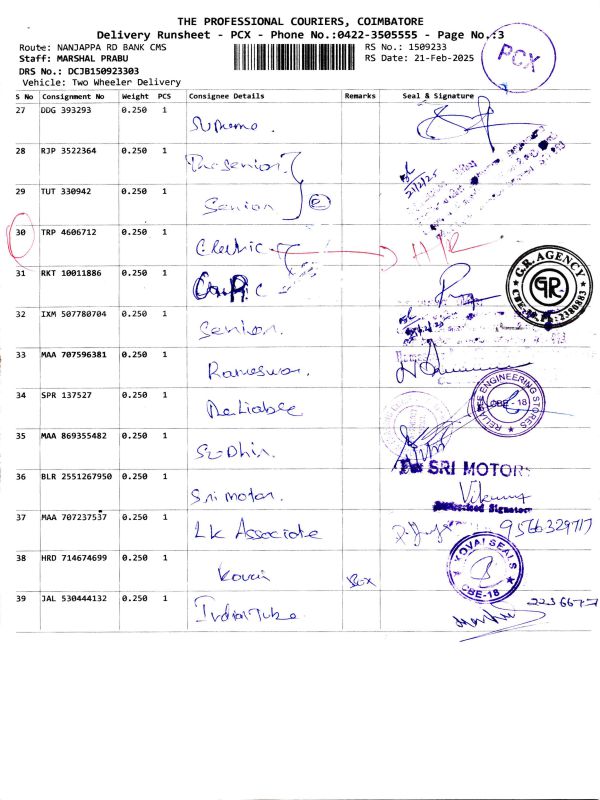 THE PROFESSIONAL COURIERS, COIMBATORE
Delivery Runsheet - PCX - Phone No.:0422-3505555 - Page No.:3
Route: NANJAPPA RD BANK CMS
RS No.: 1509233
Staff: MARSHAL PRABU
RS Date: 21-Feb-2025
DRS No.: DCJB150923303
Vehicle: Two Wheeler Delivery
PCX
S No Consignment No Weight PCS Consignee Details Remarks Seal & Signature
27 DDG 393293 0.250 1 Supremo.
28 RJP 3522364 0.250 1
21/2/25
29 TUT 330942 0.250 1 Senion
30 TRP 4606712 0.250 1
31 RKT 10011886 0.250 1
G.R. AGENCY
GR
32 IXM 507780704 0.250 1 Senion.
33 MAA 707596381 0.250 1 Rameswar.
34 SPR 137527 0.250 1 Reliable
RELIABLE ENGINEERING STORES
CBE-18
35 MAA 869355482 0.250 1 Sudhir.
36 BLR 2551267950 0.250 1 Sri motor.
SRI MOTORS
Authorised Signatory
37 MAA 707237537 0.250 1 LK Associate 9566329717
38 HRD 714674699 0.250 1 Kovai Box
KOVAI SEALS
CBE-18
39 JAL 530444132 0.250 1 Indian Tube